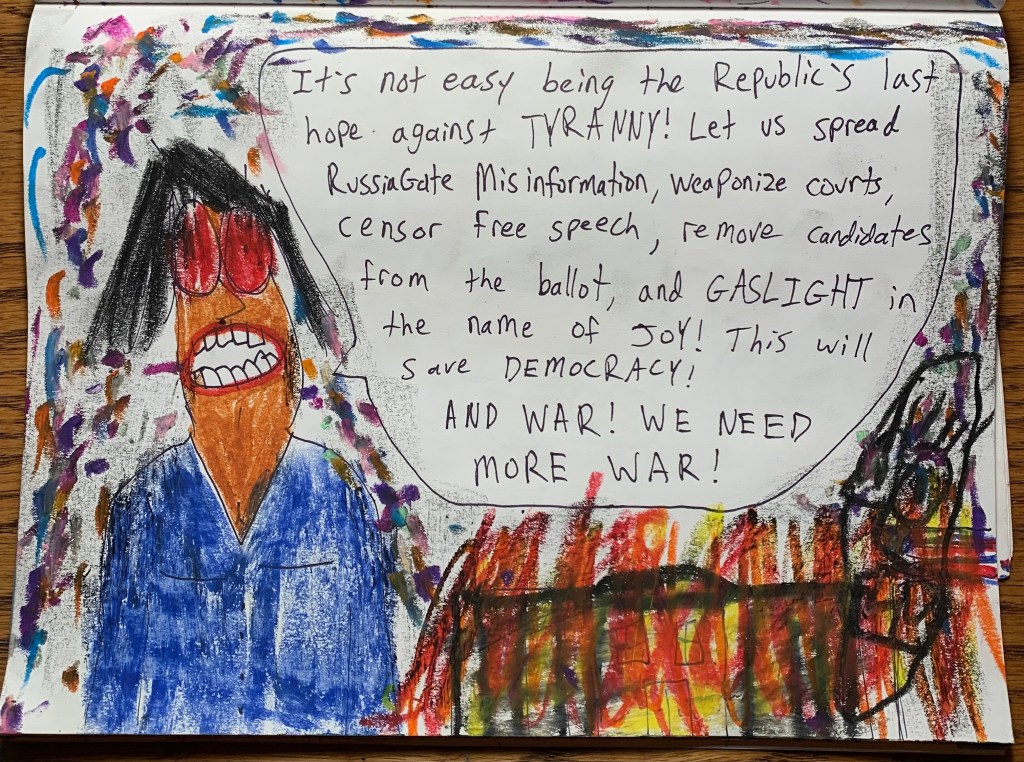 It's not easy being the Republic's last
hope against TYRANNY! Let us spread
RussiaGate Misinformation, weaponize courts,
censor free speech, remove candidates
from the ballot, and GASLIGHT in
the name of JOY! This will
save DEMOCRACY!
AND WAR! WE NEED
MORE WAR!